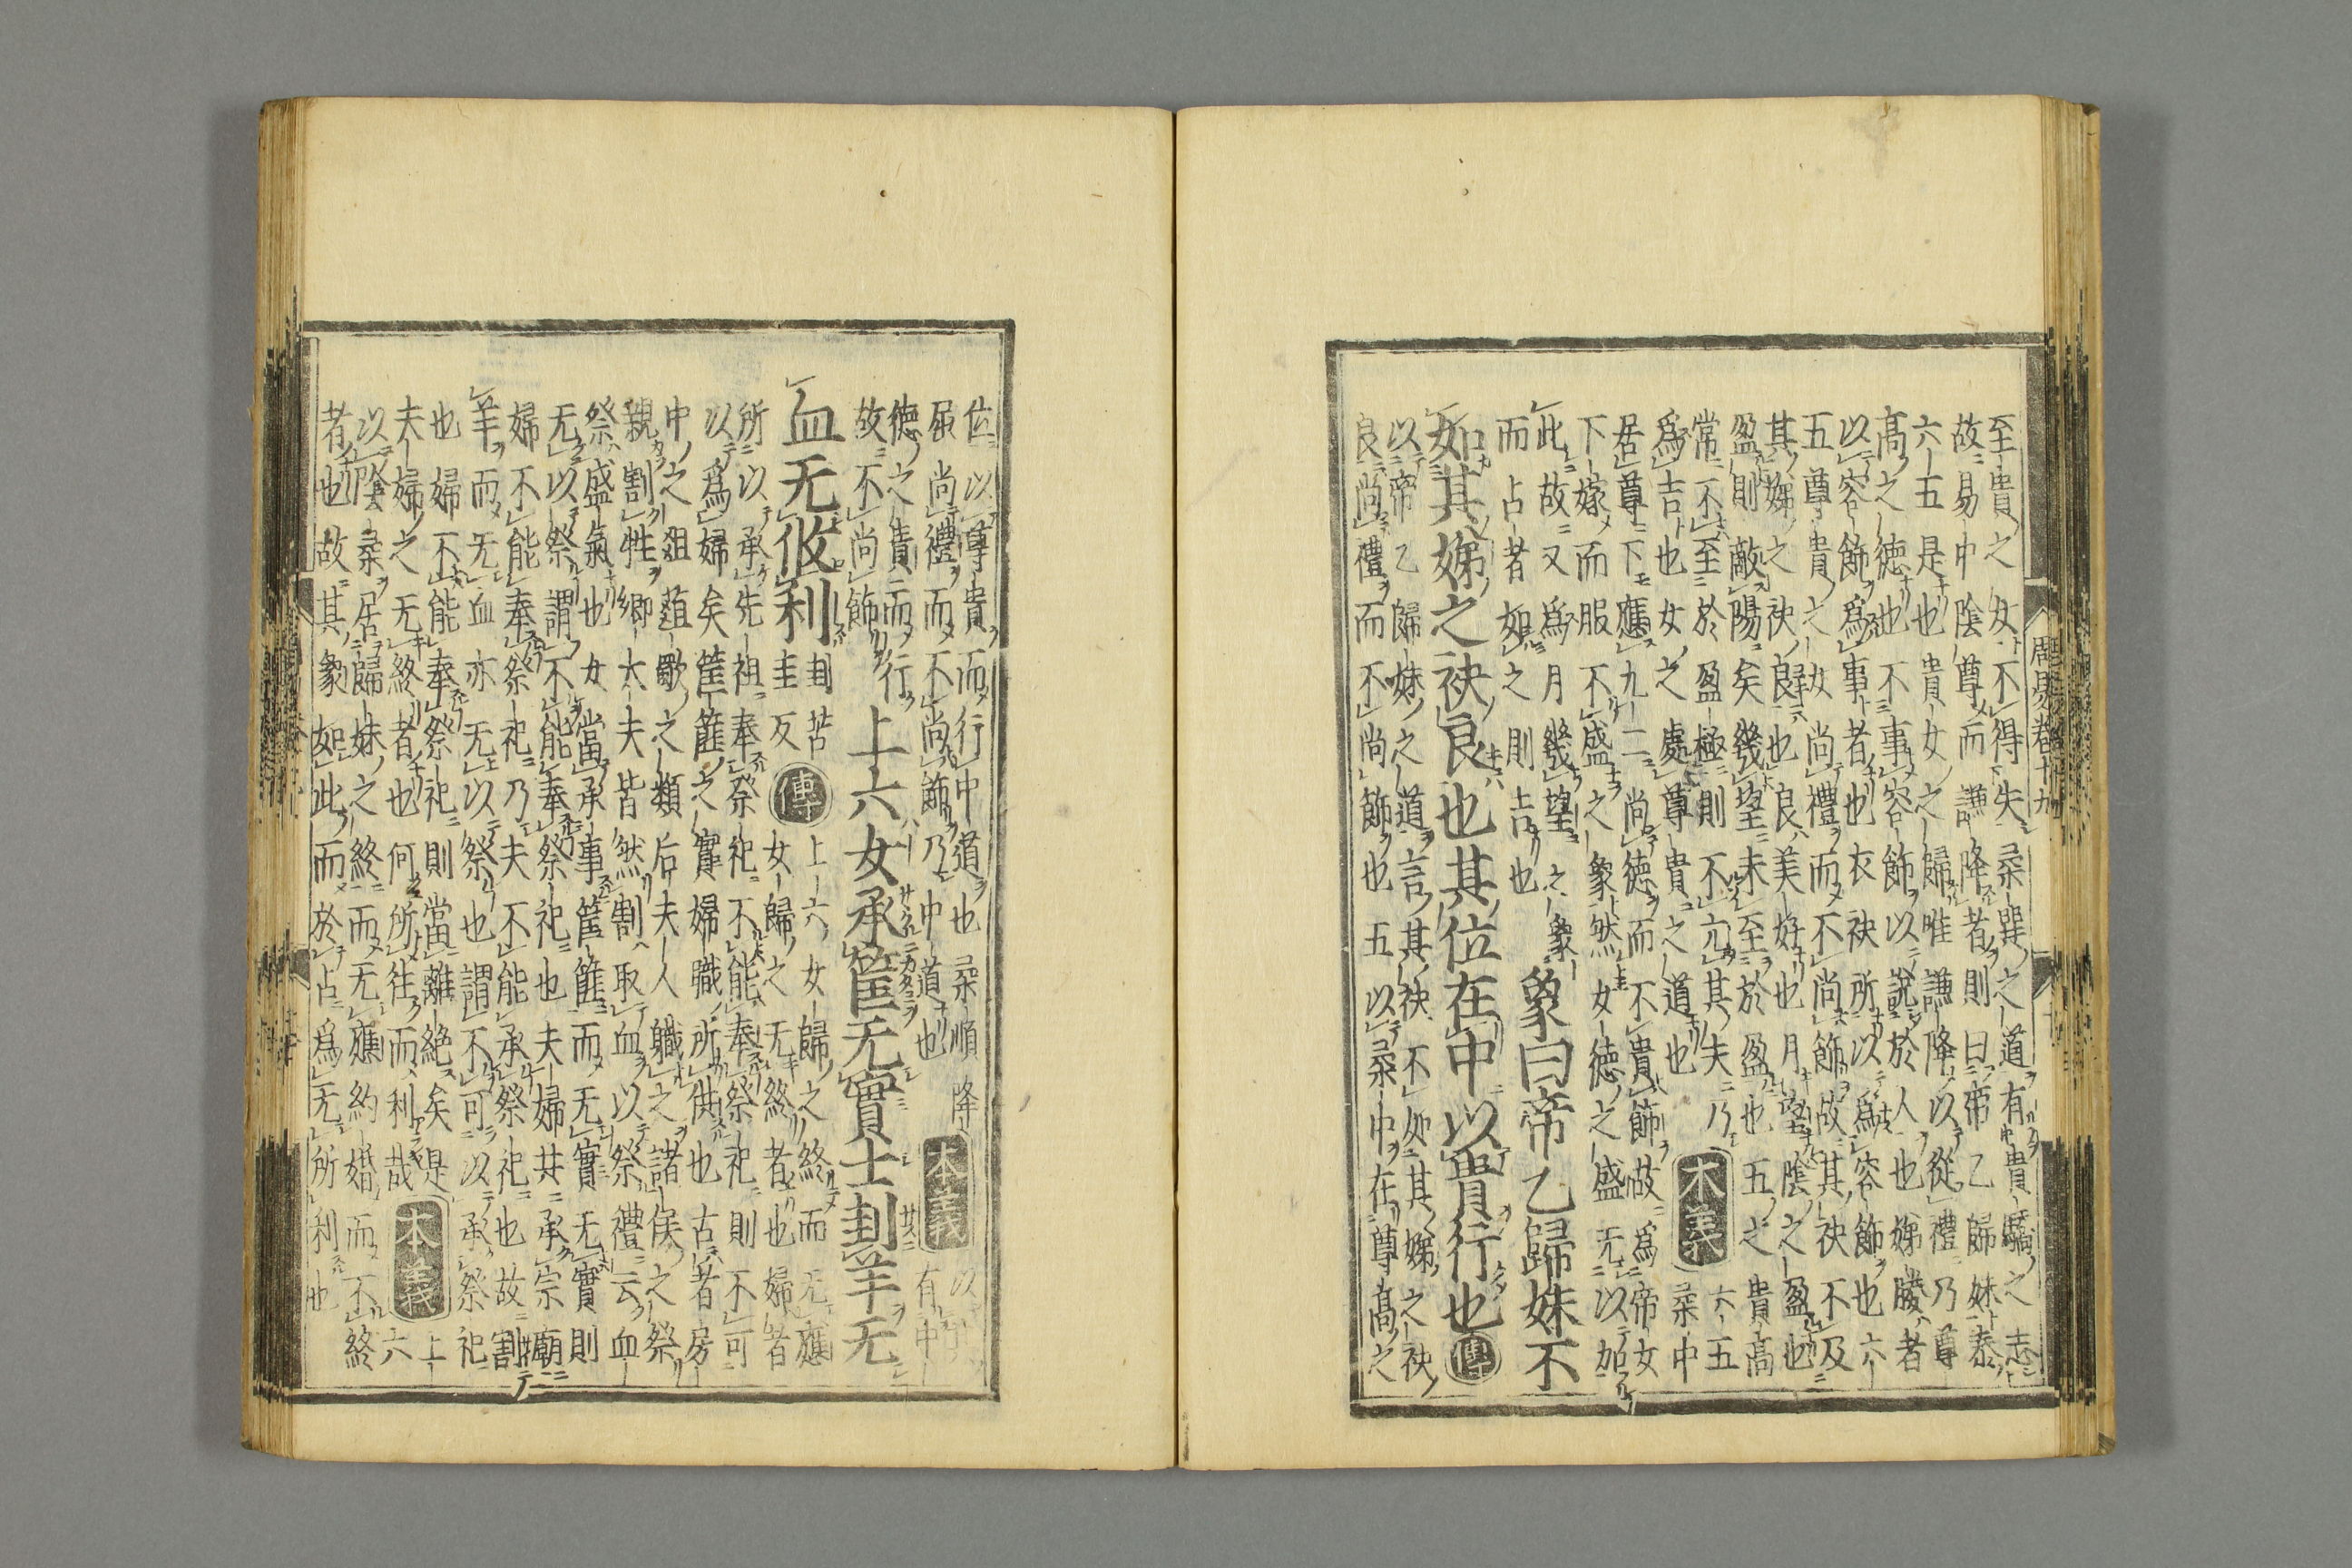 周易卷十九
至貴之女不得失柔巽之道有貴驕之志
故易中陰尊而謙降者則曰帝乙歸妹泰
六五是也貴女之歸唯謙降以從禮乃尊
高之德也不事容飾以說於人也娣媵者
以容飾爲事者也衣袂所以爲容飾也六
五尊貴之女尚禮而不尚飾故其袂不及
其娣之袂良也良美好也月望陰之盈也
盈則敵陽矣幾望未至於盈也五之貴高
常不至於盈極則不亢其夫乃
爲吉也女之處尊貴之道也
本義
六五
柔中
居尊下應九二尚德而不貴飾故爲帝女
下嫁而服不盛之象然女德之盛无以加
此故又爲月幾望之象
而占者如之則吉也
象曰帝乙歸妹不
如其娣之袂良也其位在中以貴行也
傳
以帝乙歸妹之道言其袂不如其娣之袂
良尚禮而不尚飾也五以柔中在尊高之
位以尊貴而行中道也柔順降
屈尚禮而不尚飾乃中道也
本義
以其
有中
德之貴而行
故不尚飾
上六女承筐无實士刲羊无
血无攸利
刲苦
圭反
傳
上六女歸之終而无應
女歸之无終者也婦者
所以承先祖奉祭祀不能奉祭祀則不可
以爲婦矣筐篚之實婦職所供也古者房
中之俎菹歜之類后夫人職之諸侯之祭
親割牲卿大夫皆然割取血以祭禮云血
祭盛氣也女當承事筐篚而无實无實則
无以祭謂不能奉祭祀也夫婦共承宗廟
婦不能奉祭祀乃夫不能承祭祀也故割
羊而无血亦无以祭也謂不可以承祭祀
也婦不能奉祭祀則當離絶矣是
夫婦之无終者也何所往而利哉
本義
上
六
以陰柔居歸妹之終而无應約婚而不終
者也故其象如此而於占爲无所利也